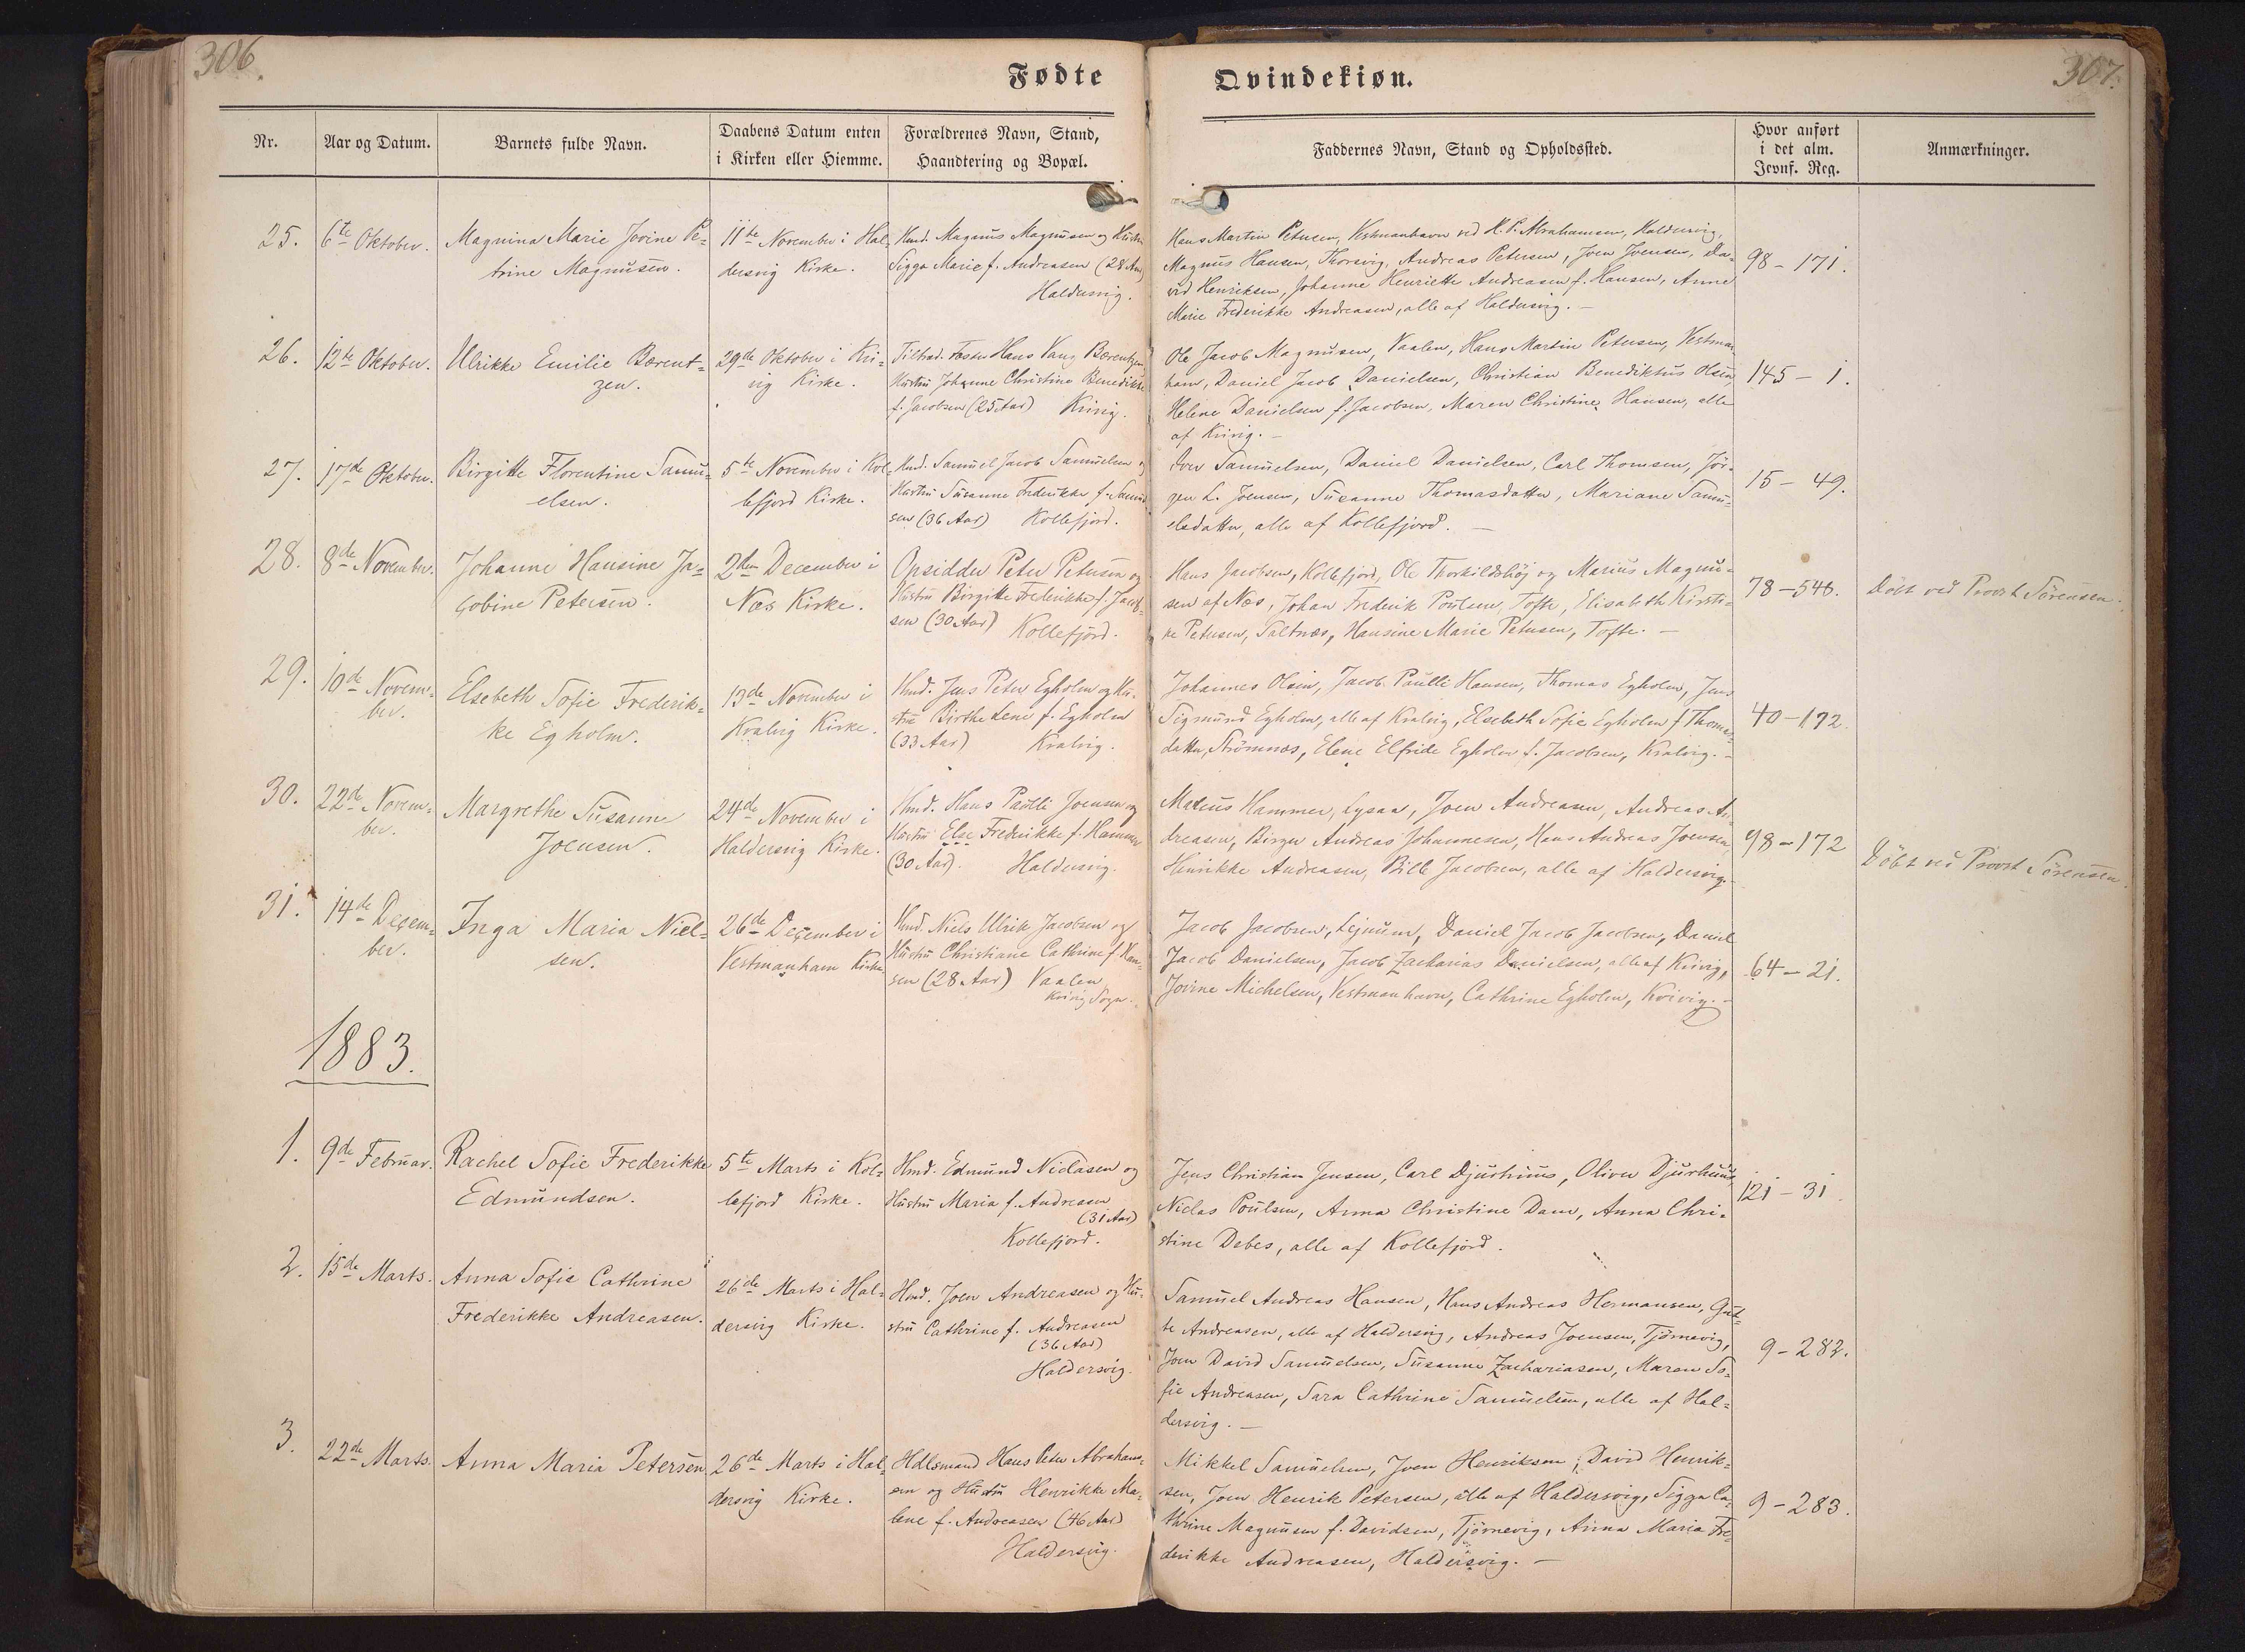 306.
Fødte
Nr.
Aar og Datum.
Barnets fulde Navn.
Daabens Datum enten
i Kirken eller Hiemme.
Forældrenes Navn, Stand,
Haandtering og Bopæl.
25.
6te Oktober.
Magnina Marie Jovine Pe=
trine Magnusen.
11te November i Hal=
dersvig Kirke.
Hmd. Magnus Magnusen og Hustru
Sigga Marie f. Andreasen (28 Aar)
Haldersvig.
26.
12te Oktober.
Ulrikke Emilie Bærent=
zen.
29de Oktober i Kvi=
vig Kirke.
Hans Vang Bærentzen
Hustru Johanne Christine Benedikte
f. Jacobsen (25 Aar) Kvivig.
27.
17de Oktober.
Birgitte Florentine Samu=
elsen.
5te November i Kol=
lefjord Kirke.
Hmd. Samuel Jacob Samuelsen og
Hustru Susanne Frederikke f. Samuel
sen (36 Aar) Kollefjord.
28.
8de November.
Johanne Hansine Ja=
cobine Petersen.
2den December i
Næs Kirke.
Opsidder Peter Petersen og
Hustru Birgitte Frederikke f. Jacob=
sen (30 Aar) Kollefjord.
29.
10de Novem=
ber.
Elsebeth Sofie Frederik=
ke Egholm.
13de November i
Kvalvig Kirke.
Hmd. Jens Peter Egholm og Hu=
stru Birthe Lene f. Egholm
(33 Aar) Kvalvig.
30.
22de Novem=
ber.
Margrethe Susanne
Joensen.
24de November i
Haldersvig Kirke.
Hmd. Hans Paolli Joensen og
Hustru Else Frederikke f. Hammer
(30 Aar). Haldersvig.
31.
14de Decem=
ber.
Inga Maria Niel=
sen.
26de December i
Vestmanhavn Kirke.
Hmd. Niels Ulrik Jacobsen og
Hustru Christiane Cathrine f. Han=
sen (28 Aar) Vaalen
Kvivig Sogn.
1883.
1.
9de Februar.
Rachel Sofie Frederikke
Edmundsen.
5te Marts i Kol=
lefjord Kirke.
Hmd. Edmund Niclasen og
Hustru Maria f. Andreasen
(31 Aar)
Kollefjord.
2.
15de Marts.
Anna Sofie Cathrine
Frederikke Andreasen.
26de Marts i Hal=
dersvig Kirke.
Hmd. Joen Andreasen og Hu=
stru Cathrine f. Andreasen
(36 Aar)
Haldersvig.
3.
22de Marts.
Anna Maria Petersen
26de Marts i Hal=
dersvig Kirke.
Hdlsmand Hans Peter Abraham=
sen og Hustru Henrikke Ma=
lene f. Andreasen (46 Aar)
Haldersvig.
307.
Qvindekiøn.
Faddernes Navn, Stand og Opholdssted.
Hvor anført
i det alm.
Jevnf. Reg.
Anmærkninger.
Hans Martin Petersen, Vestmanhavn ved H. P. Abrahamsen, Haldersvig,
Magnus Hansen, Thorsvig, Andreas Petersen, Joen Joensen, Da=
vid Henriksen, Johanne Henriette Andreasen f. Hansen, Anne
Marie Frederikke Andreasen, alle af Haldersvig. —
98 - 171.
Ole Jacob Magnusen, Vaalen, Hans Martin Petersen, Vestman=
havn, Daniel Jacob Danielsen, Christian Benediktus Olsen,
Helene Danielsen f. Jacobsen, Maren Christine Hansen, alle
af Kvivig. —
145 - 1.
Samuelsen, Daniel Danielsen, Carl Thomsen, Jør=
gen L. Joensen, Susanne Thomasdatter, Mariane Samu=
elsdatter, alle af Kollefjord. —
15 - 49.
Hans Jacobsen, Kollefjord, Ole Thorkildshøj og Marius Magnu=
sen af Næs, Johan Frederik Poulsen, Tofte, Elisabeth Kirsti=
ne Petersen, Saltnæs, Hansine Marie Petersen, Tofte. —
78 - 548.
Döbt ved Provst Sörensen.
Johannes Olsen, Jacob Paulli Hansen, Thomas Egholm, Jens
Sigmund Egholm, alle af Kvalvig, Elsebeth Sofie Egholm f. Thomas=
datter, Strömnæs, Elene Elfride Egholm f. Jacobsen, Kvalvig. -
40 - 192.
Markus Hammer, Lysaa, Joen Andreasen, Andreas An=
dreasen, Birger Andreas Johannesen, Hans Andreas Joensen,
Henrikke Andreasen, Bille Jacobsen, alle af Haldersvig. -
98 - 172
Döbt ved Provst Sörensen.
Jacob Jacobsen, Lejnum, Daniel Jacob Jacobsen, Daniel
Jacob Danielsen, Jacob Zacharias Danielsen, alle af Kvivig,
Jovine Michelsen, Vestmanhavn, Cathrine Egholm, Kvivig. -
64 - 21.
Jens Christian Jensen, Carl Djurhuus, Oliver Djurhuus,
Niclas Poulsen, Anna Christine Dam, Anna Chri=
stine Debes, alle af Kollefjord.
121 - 31.
Samuel Andreas Hansen, Hans Andreas Hermansen, Gut=
te Andreasen, alle af Haldersvig, Andreas Joensen, Tjörnevig,
Joen David Samuelsen, Susanne Zachariasen, Maren So=
fie Andreasen, Sara Cathrine Samuelsen, alle af Hal=
dersvig. —
9 - 282.
Mikkel Samuelsen, Joen Henriksen, David Henrik=
sen, Joen Henrik Petersen, alle af Haldersvig, Sigga Ca=
thrine Magnusen f. Davidsen, Tjörnevig, Anna Maria Fre=
derikke Andreasen, Haldersvig. —
9 - 283.